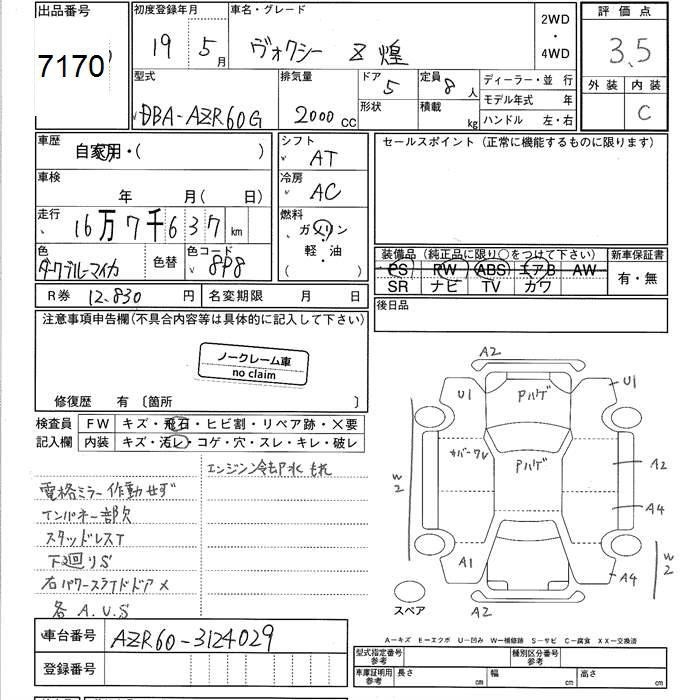 出品番号 7170
初度登録年月 19 5月
車名・グレード ヴォクシー Z 煌
2WD・4WD
評価点 3.5
外装 内装 C
型式 DBA-AZR60G
排気量 2000cc
ドア 5 形状
定員 8人 積載 kg
ディーラー・並 行
モデル年式 年
ハンドル 左・右
車歴 自家用・( )
シフト AT
セールスポイント (正常に機能するものに限ります)
車検 年 月( 日)
冷房 AC
走行 16万7千637km
燃料 ガソリン 軽・油 ( )
色 ダークブルーマイカ 色替 色コード 8P8
装備品 (純正品に限り○をつけて下さい) 新車保証書
PS PW ABS エアB AW 有・無
SR ナビ TV カワ
R券 12.830 円 名変期限 月 日
後日品
注意事項申告欄(不具合内容等は具体的に記入して下さい)
ノークレーム車
no claim
修復歴 有 〔箇所 〕
検査員 FW キズ・飛石・ヒビ割・リペア跡・×要
記入欄 内装 キズ・汚レ・コゲ・穴・スレ・キレ・破レ
エンジン冷却水もれ
電格ミラー作動せず
インパネ一部欠
スタッドレスT
下廻りS
右パワースライドドア×
各A.U.S
A2
U1 Pハゲ U1
カバーワレ Pハゲ A2
W2
A4
A1 A4 W2
スペア A2
A-キズ E-エクボ U-凹み W-補修跡 S-サビ C-腐食 XX-交換済
車台番号 AZR60-3124029
登録番号
型式指定番号 参考 種別区分番号 参考
車庫証明用 参考 長さ cm 幅 cm 高さ cm